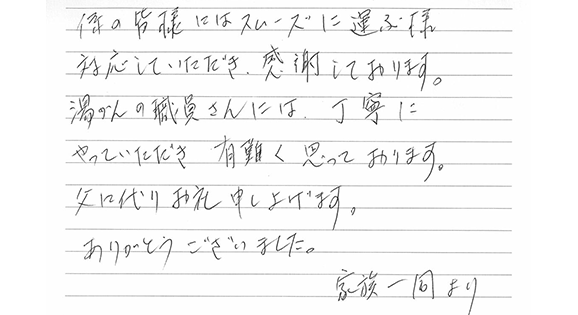 係の皆様にはスムーズに運ぶ様
対応していただき、感謝しております。
湯かんの職員さんには、丁寧に
やっていただき 有難く思っております。
父に代りお礼申し上げます。
ありがとうございました。
家族一同より